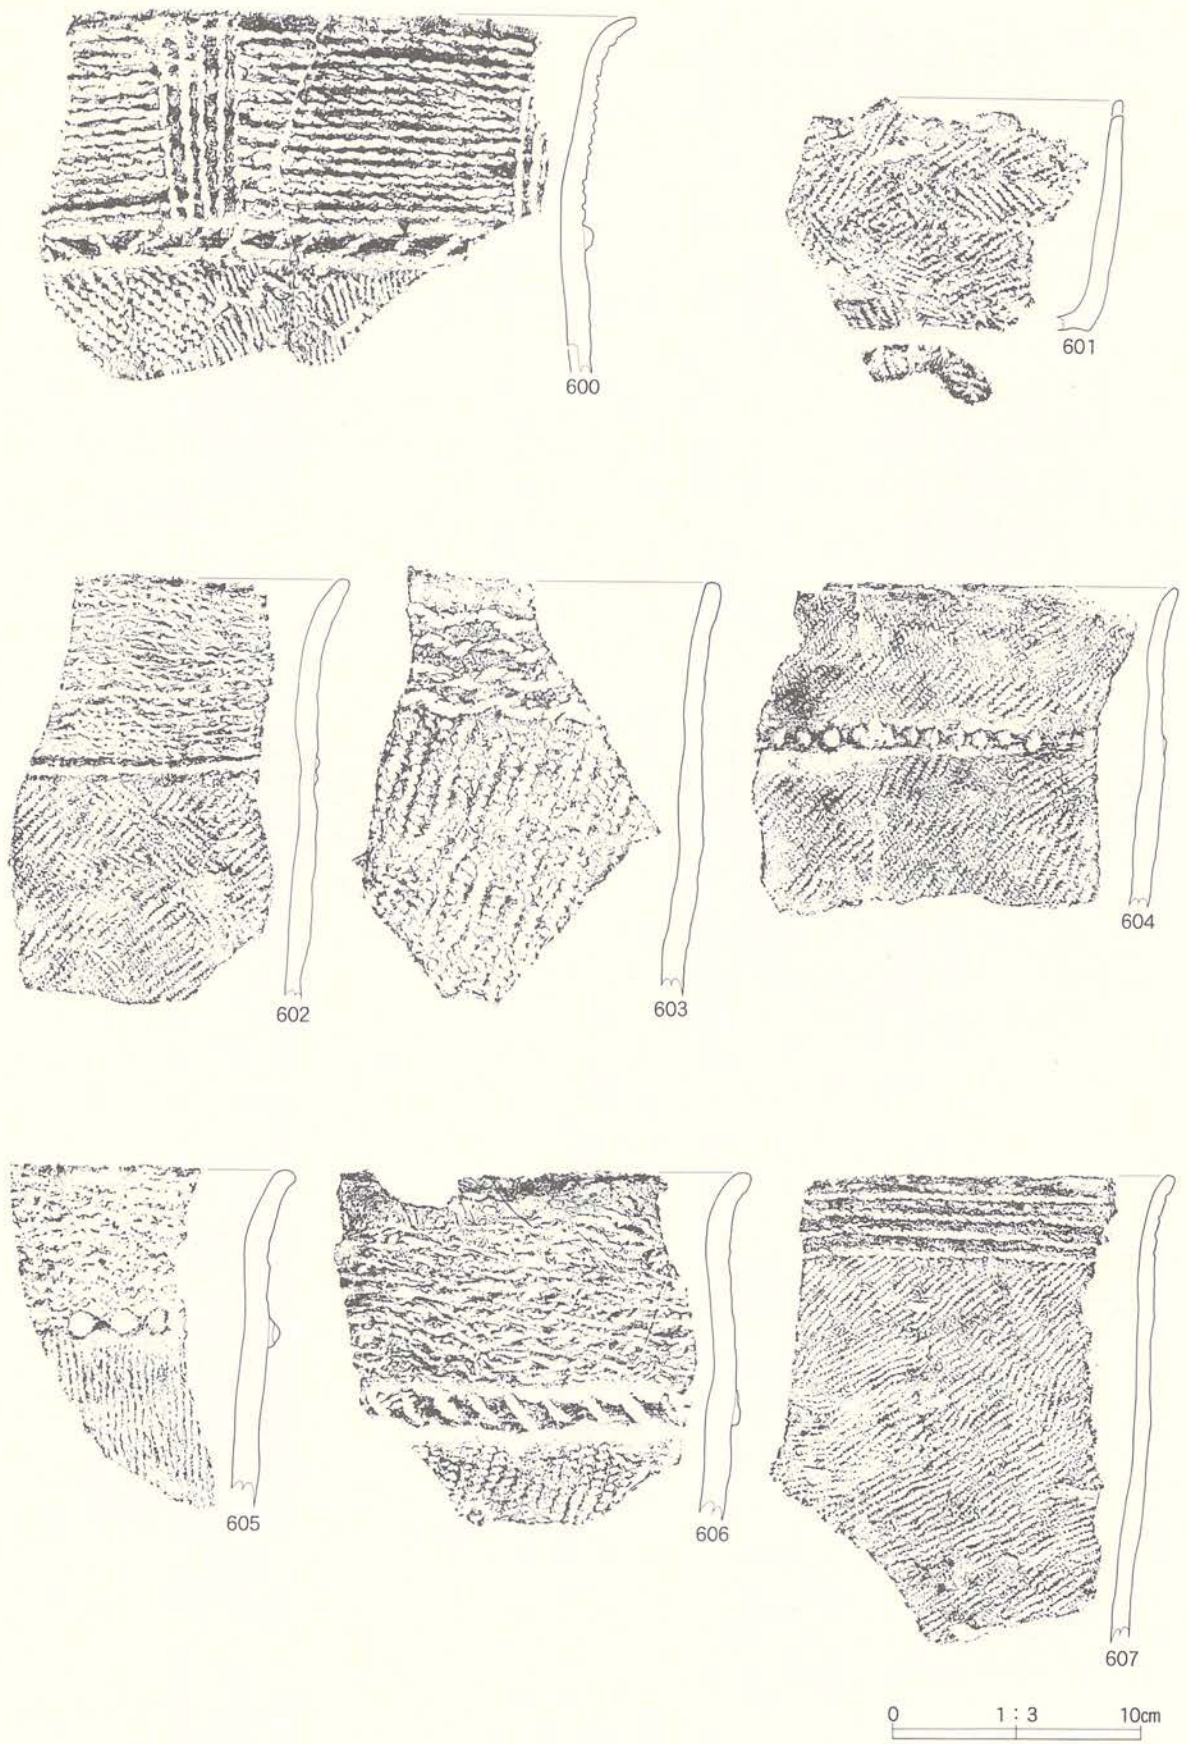 600
601
602
603
604
605
606
607
0 1:3 10cm